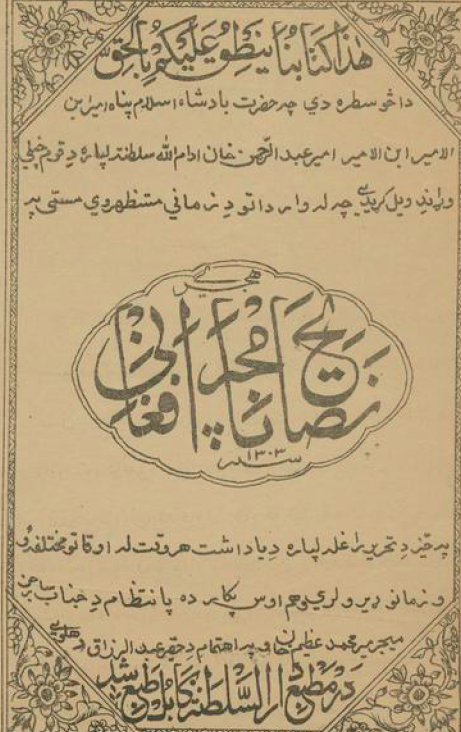 هذا کتابنا ینطق علیکم بالحق
داڅو سطره دي چه حضرت بادشاه اسلام پناه امیر ابن
الامیر ابن الامیر امیر عبدالرحمن خان ادام الله سلطنته لپاره دِ قوم خپلي
وړاندِ ویل کړیدي چه له وارداتو دِ زماني مستظهر وي مسمّی پر
هجری
نصایح
نامچه
افغانی
سنه ۱۳۰۳
په څیز دِ تحریر راغله لپاره دِ یاداشت هر وقت له اوقاتو مختلفه و
و زمانو ډیرو لري وهم اوس پکار ده پانتظام دِ جناب صاحب
میجر میر محمد عظیم خان په اهتمام دِ حقر عبدالرزاق دهلوی
در مطبع دارالسلطنه کابل طبع شد